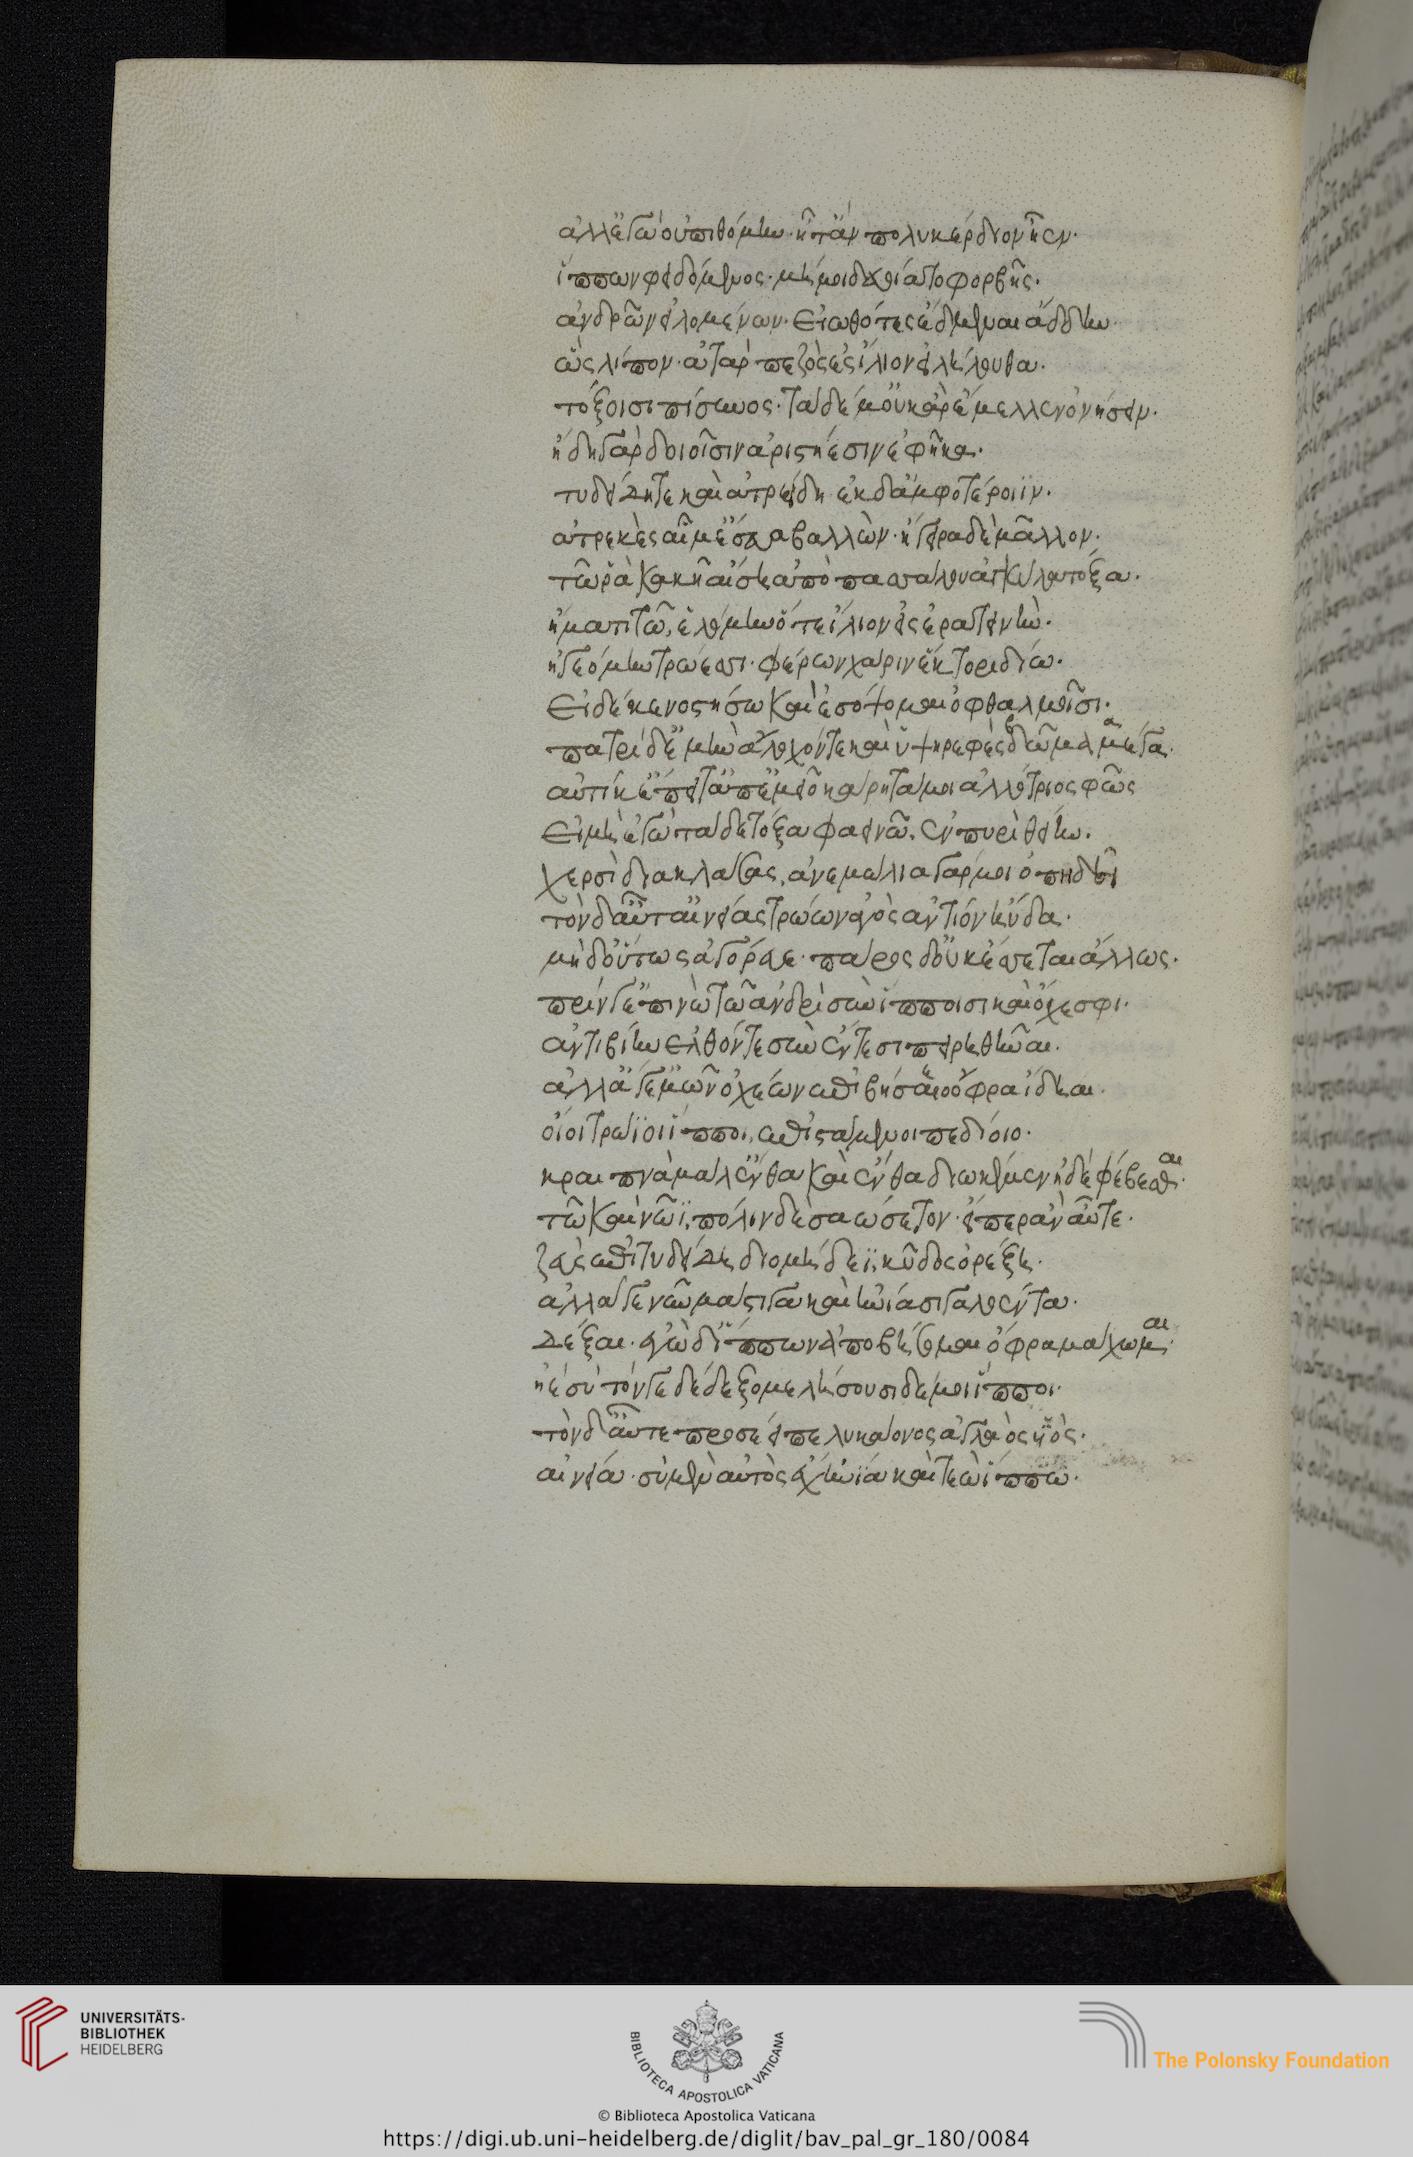 ἀλλ' ἐγὼ οὐ πιθόμην· ἦ τ' ἂν πολὺ κέρδιον ἦεν·
ἵππων φειδόμενος· μή μοι δευοίατο φορβῆς·
ἀνδρῶν εἰλομένων· εἰωθότες ἔδμεναι ἄδδην
ὣς λίπον· αὐτὰρ πεζὸς ἐς ἴλιον εἰλήλουθα·
τόξοισι πίσυνος· τὰ δέ μ' οὐκ ἄρ' ἔμελλεν ὀνήσειν·
ἤδη γὰρ δοιοῖσιν ἀριστήεσιν ἐφῆκα·
τυδείδη τε καὶ ἀτρείδη ἐκ δ' ἀμφοτέροιϊν·
ἀτρεκὲς αἷμ' ἔσσευα βαλλὼν· ἤγειρα δὲ μᾶλλον·
τῶ ῥα κακῆ αἴση ἀπὸ πασσάλου ἀγκύλα τόξα·
ἤματι τῷ, ἑλόμην ὅτε ἴλιον εἰς ἐρατεινὴν·
ἡγεόμην τρώεσσι· φέρων χάριν ἕκτορι δίω·
εἰ δέ κε νοστήσω καὶ ἐσόψομαι ὀφθαλμοῖσι·
πατρίδ' ἐμὴν ἄλοχόν τε καὶ ὑψηρεφὲς δῶμα μέγα·
αὐτίκ' ἔπειτ' ἀπ' ἐμεῖο κάρη τάμοι ἀλλότριος φῶς
εἰ μὴ ἐγὼ τάδε τόξα φαεινῶ, ἐν πυρὶ θείην·
χερσὶ διακλάσσας, ἀνεμώλια γάρ μοι ὀπηδεῖ
τὸν δ' αὖτ' αἰνείας τρώων ἀγὸς ἀντίον ηὔδα·
μὴ δ' οὕτως ἀγόρευε· πάρος δ' οὐκ ἔσσεται ἄλλως·
πρίν γ' ἐπὶ νὼ τῶ ἀνδρὶ σὺν ἵπποισι καὶ ὄχεσφι·
ἀντιβίην ἐλθόντε σὺν ἔντεσι πειρηθῆναι·
ἀλλ' ἄγ' ἐμῶν ὀχέων ἐπιβήσεαι ὄφρα ἴδηαι·
οἷοι τρώϊοι ἵπποι, ἐπιστάμενοι πεδίοιο·
κραιπνὰ μάλ' ἔνθα καὶ ἔνθα διωκέμεν ἠδὲ φέβεσθαι·
τὼ καὶ νῶϊ, πόλιν δὲ σαώσετον· εἴπερ ἂν αὖτε·
ζεὺς ἐπὶ τυδείδη διομήδεϊ, κῦδος ὀρέξη·
ἀλλ' ἄγε νῦν μάστιγα καὶ ἡνία σιγαλόεντα·
δέξαι· ἐγὼ δ' ἵππων ἀποβήσομαι ὄφρα μάχωμαι·
ἠὲ σὺ τόνγε δέδεξο μελήσουσι δέ μοι ἵπποι·
τὸν δ' αὖτε προσέειπε λυκάονος ἀγλαὸς υἱὸς·
αἰνεία· σὺ μὲν αὐτὸς ἔχ' ἡνία καὶ τεὼ ἵππω·
UNIVERSITÄTS-
BIBLIOTHEK
HEIDELBERG
BIBLIOTECA APOSTOLICA VATICANA
The Polonsky Foundation
© Biblioteca Apostolica Vaticana
https://digi.ub.uni-heidelberg.de/diglit/bav_pal_gr_180/0084